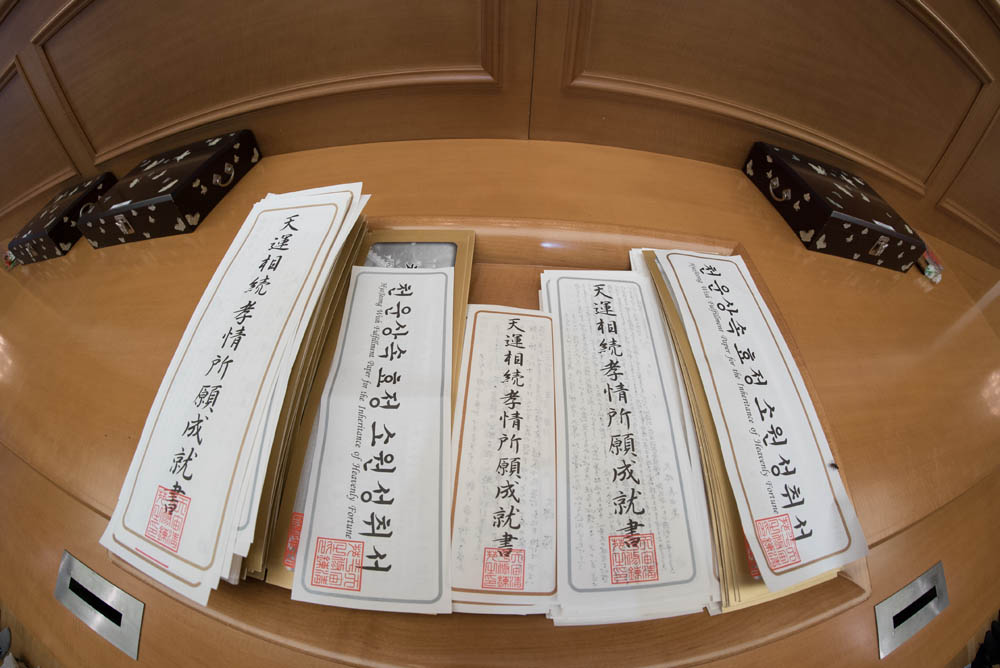 天運相続孝情所願成就書
천운상속 효정 소원성취서
Hyojeong Wish Fulfillment Paper for the Inheritance of Heavenly Fortune
天運相続孝情所願成就書
天運相続孝情所願成就書
천운상속 효정 소원성취서
Hyojeong Wish Fulfillment Paper for the Inheritance of Heavenly Fortune